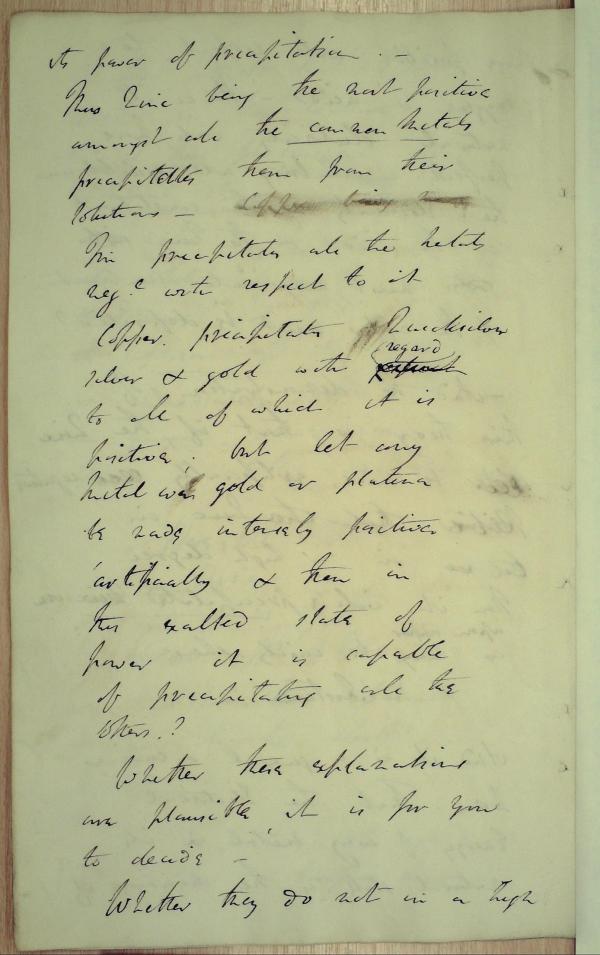 its power of precipitation. –
Thus Zinc being the most positive
amongst all the common Metals
precipitates them from their
solutions – Copper being
Tin precipitates all the Metals
neg.e with respect to it
Copper. precipitates Quicksilver
regard
silver & gold with respect
to all of which it is
positive; but let any
Metal even gold or platina
be made intensely positive
artificially & then in
this exalted state of
power it is capable
of precipitating all the
others.?
Whether these explanations
are plausible, it is for you
to decide –
Whether they do not in a high